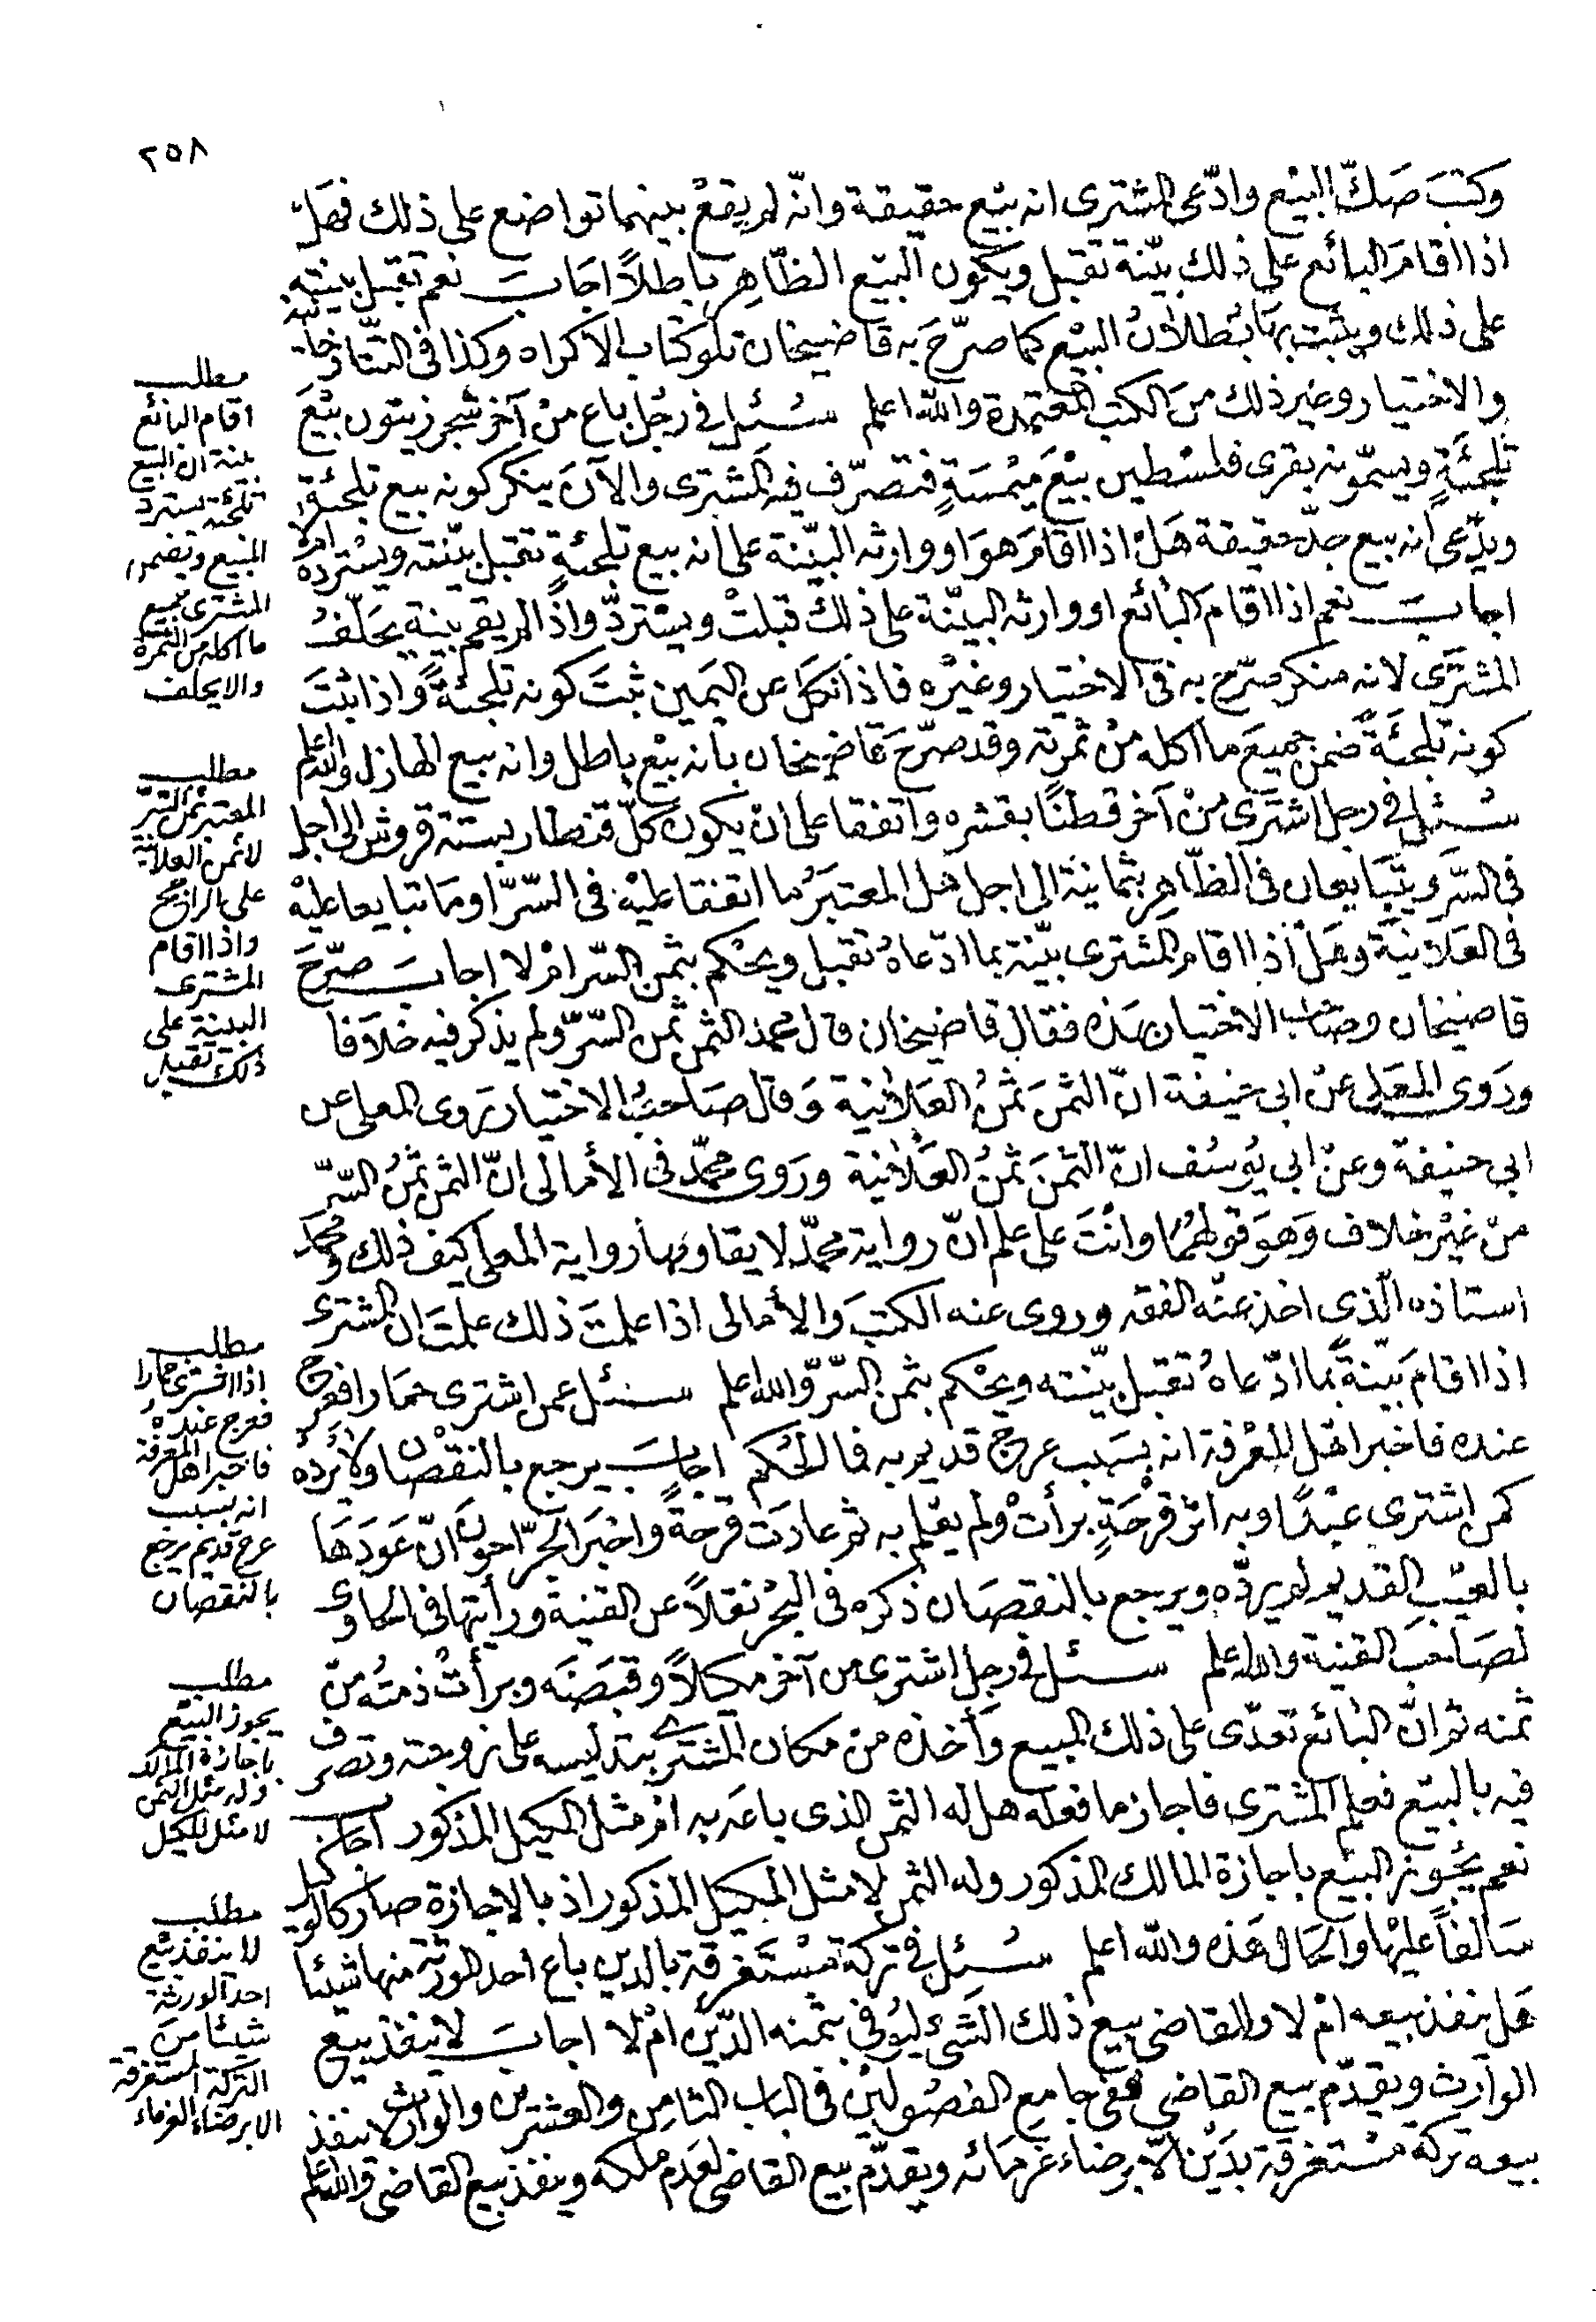 ٢٥٨
وكتبَ صَكّ البيْع وادّعى المشترى انه بيْع حقيقة وانّه لم يقعْ بينهما تواضع على ذلك فهَل
اذا اقامَ البائع على ذلك بيّنة تقبل ويكون البيّع الظّاهِر باطلاً اجَابَ نعم تقبل بينته
على ذلك ويثبت بهَا بُطلان البيْع كما صرّحَ به قاضيخان تلو كتاب الاكراه وكذا فى التتارخانية
والاختيار وغير ذلك منَ الكتب المعتمدة والله اعلم سُئل فى رجُل باع منْ آخر شجر زيتون بيْعَ
تلجئَةٍ ويسمّونه بقرى فلسْطين بيْعَ مَيْمسَةٍ فتصرّف فيه المشترى والآنَ ينكر كونه بيع تلجئة
ويدّعى أنه بيع جدّ حقيقة هَلْ اذا اقامَ هوَ او وارثه البيّنة على انه بيع تلجئةٍ تقبل بيّنته ويسْترده ام لا
اجابَ نعم اذا اقامَ البائع او وارثه البيّنة على ذلكَ قبلتْ ويسْتردّ واذا لم يقم بينة يحَلّفُ
المشترى لانه منكر صرّح به فى الاختيار وغيْره فاذا نكل عن اليَمين ثبتَ كونه تلجئةً واذا ثبتَ
كونه تلجئَةً ضمن جميعَ ما اكله منْ ثمرته وقد صرّحَ قاضيخان بأنه بيْع باطل وانه بيع الهازل والله اعلم
سُئل فى رجل اشترَى منْ آخر قطنًا بقشره واتفقا على انْ يكون كلّ قنطار بستة قروش الى اجل
فى السّر ويتبَايعان فى الظّاهِر بثمانية الى اجل هل المعتبَرُ ما اتفقا عليْه فى السّرّ او مَا تبايعا عليْه
فى العَلانيَة وهَلْ اذا اقام المشترى بيّنة بما ادّعاهُ تقبل ويحْكم بثمن السّر امْ لا اجابَ صرّحَ
قاضيخان وصَاحب الاختيار بهَذه فقال قاضيخان قال محمد الثمن ثمن السّرّ ولم يذكر فيه خلافا
وروَى المعَلى عنْ ابى حنيفة انّ الثمنَ ثمنُ العَلانية وَقال صَاحبُ الاختيار رَوى المعلى عن
ابى حنيفة وعنْ ابى يُوسُف انّ الثمنَ ثمنُ العَلانية وروَى محمّد فى الأمالى انّ الثمن ثمنُ السّرّ
منْ غيْر خلاف وَهوَ قولهُما وانْتَ على علم انّ رواية محمّد لا يقاومها رواية المعلى كيف ذلك ومحمد
استاذه الّذى اخذ عنه الفقه وروى عنه الكتبَ والأمالى اذا علمتَ ذلك علمتَ ان المشترى
اذا اقامَ بيّنةً بما ادّعاهُ تقبل بيّنته ويحْكم بثمن السّرّ والله اعلم سئل عمن اشترى حمَارا فعرج
عنده فاخبر اهْل المعْرفة انه بسَبب عرج قديم به فما الحُكم اجابَ يرجع بالنقصْان ولا يَردّه
كمن اشترى عبْدًا وبه اثر قرْحَةٍ برأتْ ولم يعْلم به ثم عادَت قرحَةً واخبَر الجرّاحونَ انّ عَوَدَهَا
بالعيْب القديم لم يردّه ويرجع بالنقصَان ذكره فى البحْر نقلاً عن القنية ورأيتها فى الحَاوى
لصَاحبَ القنية والله اعلم سئل فى رجل اشترى من آخر مكيلاً وقبَضَه وبرأتْ ذمتُه منْ
ثمنه ثم انّ البَائع تعدّى على ذلك المبيع وَأخذه منْ مكان المشترى بتدليسه على زوجته وتصرف
فيه بالبيْع فعلم المشترى فاجاز ما فعله هل له الثمن الذى باعَه به ام مثل المكيل المذكور اجابَ
نعم يجُوز البيْع باجازة المالك المذكور وله الثمن لا مثل المكيل المذكور اذ بالاجازة صار كالوكيل
سَالفاً عليْها والحَال هَذه والله اعلم سُئل فى تركة مسْتَغرقة بالدين باع احد الورثة منها شيئا
هَل ينفذ بيعه امْ لا وللقاضى بيع ذلك الشئ ليُوفى بثمنه الدّين امْ لا اجابَ لا ينفذ بيع
الوَارث ويقدّم بيع القاضى ففى جامع الفصُولين فى الباب الثامن والعشرين والوارث لا ينفذ
بيعه تركة مسْتغرقة بدَيْن الاّ برضاء غرمَائه ويقدّم بيع القاضى لعَدم ملكه وينفذ بيع القاضى والله اعلم
مطلب
اقام البائع
بينة ان البيع
تلجئة يسترد
المبيع ويضمن
المشترى جميع
ما اكله من الثمرة
والا يحلف
مطلب
المعتبر ثمن السّر
لا ثمن العلانية
على الراجح
واذا اقام
المشترى
البينة على
ذلك تقبل
مطلب
اذا اشترى حمارا
فعرج عنده
فاخبر اهل المعرفة
انه بسبب
عرج قديم يرجع
بالنقصان
مطلب
يجوز البيْع
باجازة المالك
وله مثل الثمن
لا مثل المكيل
مطلب
لا ينفذ بيْع
احد الورثة
شيئا منَ
التركة المستغرقة
الا برضاء الغرماء